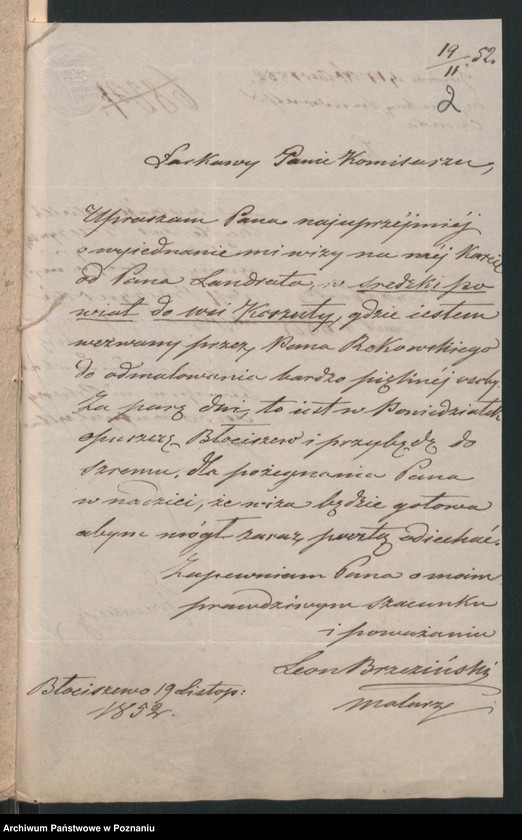 19/11 52.
2
Łaskawy Panie Komisarzu,
Upraszam Pana najuprzéjmiéj
o wyiednanie mi wizy na méj Karcie
od Pana Landrata, w średzki po
wiat do wsi Koszuty, gdzie iestem
wezwany przez Pana Rekowskiego
do odmalowania bardzo pięknéj osoby
Za parę dni, to iest w Poniedziałek
opuszczę Błociszew i przybędę do
Szremu, dla pożegnania Pana
w nadziei, że wiza będzie gotowa
abym mógł zaraz pocztą odiechać.
Zapewniam Pana o moim
prawdziwym szacunku
i poważaniu
Leon Brzeziński
malarz
Błociszewo 19 Listop:
1852.
Archiwum Państwowe w Poznaniu